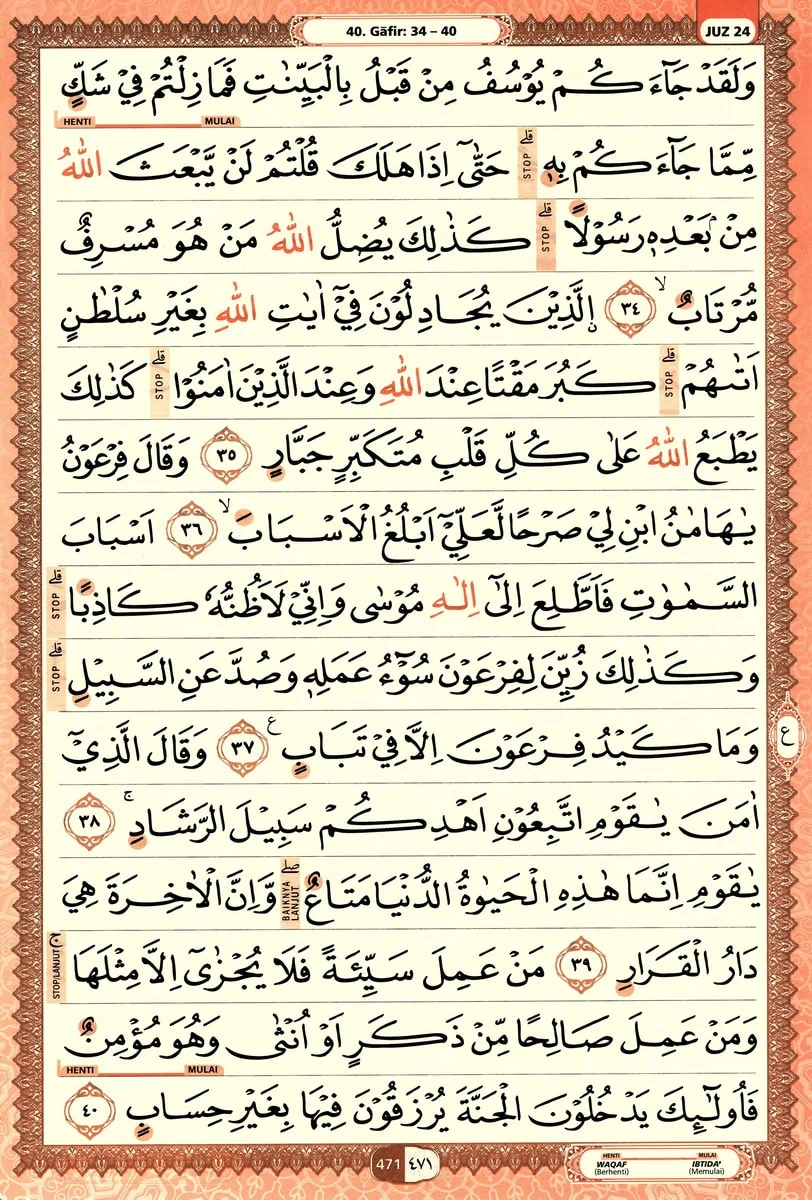 40. Gāfir: 34 – 40
JUZ 24
وَلَقَدْ جَاۤءَكُمْ يُوْسُفُ مِنْ قَبْلُ بِالْبَيِّنٰتِ فَمَا زِلْتُمْ فِيْ شَكٍّ
HENTI MULAI
مِّمَّا جَاۤءَكُمْ بِهٖ ۗ STOP حَتّٰىٓ اِذَا هَلَكَ قُلْتُمْ لَنْ يَّبْعَثَ اللّٰهُ
مِنْۢ بَعْدِهٖ رَسُوْلًا ۗ STOP كَذٰلِكَ يُضِلُّ اللّٰهُ مَنْ هُوَ مُسْرِفٌ
مُّرْتَابٌ ۙ ٣٤ ۨالَّذِيْنَ يُجَادِلُوْنَ فِيْٓ اٰيٰتِ اللّٰهِ بِغَيْرِ سُلْطٰنٍ
اَتٰىهُمْ ۗ STOP كَبُرَ مَقْتًا عِنْدَ اللّٰهِ وَعِنْدَ الَّذِيْنَ اٰمَنُوْا ۗ STOP كَذٰلِكَ
يَطْبَعُ اللّٰهُ عَلٰى كُلِّ قَلْبِ مُتَكَبِّرٍ جَبَّارٍ ٣٥ وَقَالَ فِرْعَوْنُ
يٰهَامٰنُ ابْنِ لِيْ صَرْحًا لَّعَلِّيْٓ اَبْلُغُ الْاَسْبَابَ ۙ ٣٦ اَسْبَابَ
السَّمٰوٰتِ فَاَطَّلِعَ اِلٰٓى اِلٰهِ مُوْسٰى وَاِنِّيْ لَاَظُنُّهٗ كَاذِبًا ۗ STOP
وَكَذٰلِكَ زُيِّنَ لِفِرْعَوْنَ سُوْۤءُ عَمَلِهٖ وَصُدَّ عَنِ السَّبِيْلِ ۗ STOP
وَمَا كَيْدُ فِرْعَوْنَ اِلَّا فِيْ تَبَابٍ ࣖ ٣٧ وَقَالَ الَّذِيْٓ
ع
اٰمَنَ يٰقَوْمِ اتَّبِعُوْنِ اَهْدِكُمْ سَبِيْلَ الرَّشَادِ ۚ ٣٨
يٰقَوْمِ اِنَّمَا هٰذِهِ الْحَيٰوةُ الدُّنْيَا مَتَاعٌ ۖ BAIKNYA LANJUT وَّاِنَّ الْاٰخِرَةَ هِيَ
دَارُ الْقَرَارِ ٣٩ مَنْ عَمِلَ سَيِّئَةً فَلَا يُجْزٰىٓ اِلَّا مِثْلَهَا ۚ STOP/LANJUT
وَمَنْ عَمِلَ صَالِحًا مِّنْ ذَكَرٍ اَوْ اُنْثٰى وَهُوَ مُؤْمِنٌ
HENTI MULAI
فَاُولٰۤىِٕكَ يَدْخُلُوْنَ الْجَنَّةَ يُرْزَقُوْنَ فِيْهَا بِغَيْرِ حِسَابٍ ٤٠
471 ٤٧١
HENTI MULAI
WAQAF IBTIDA'
(Berhenti) (Memulai)